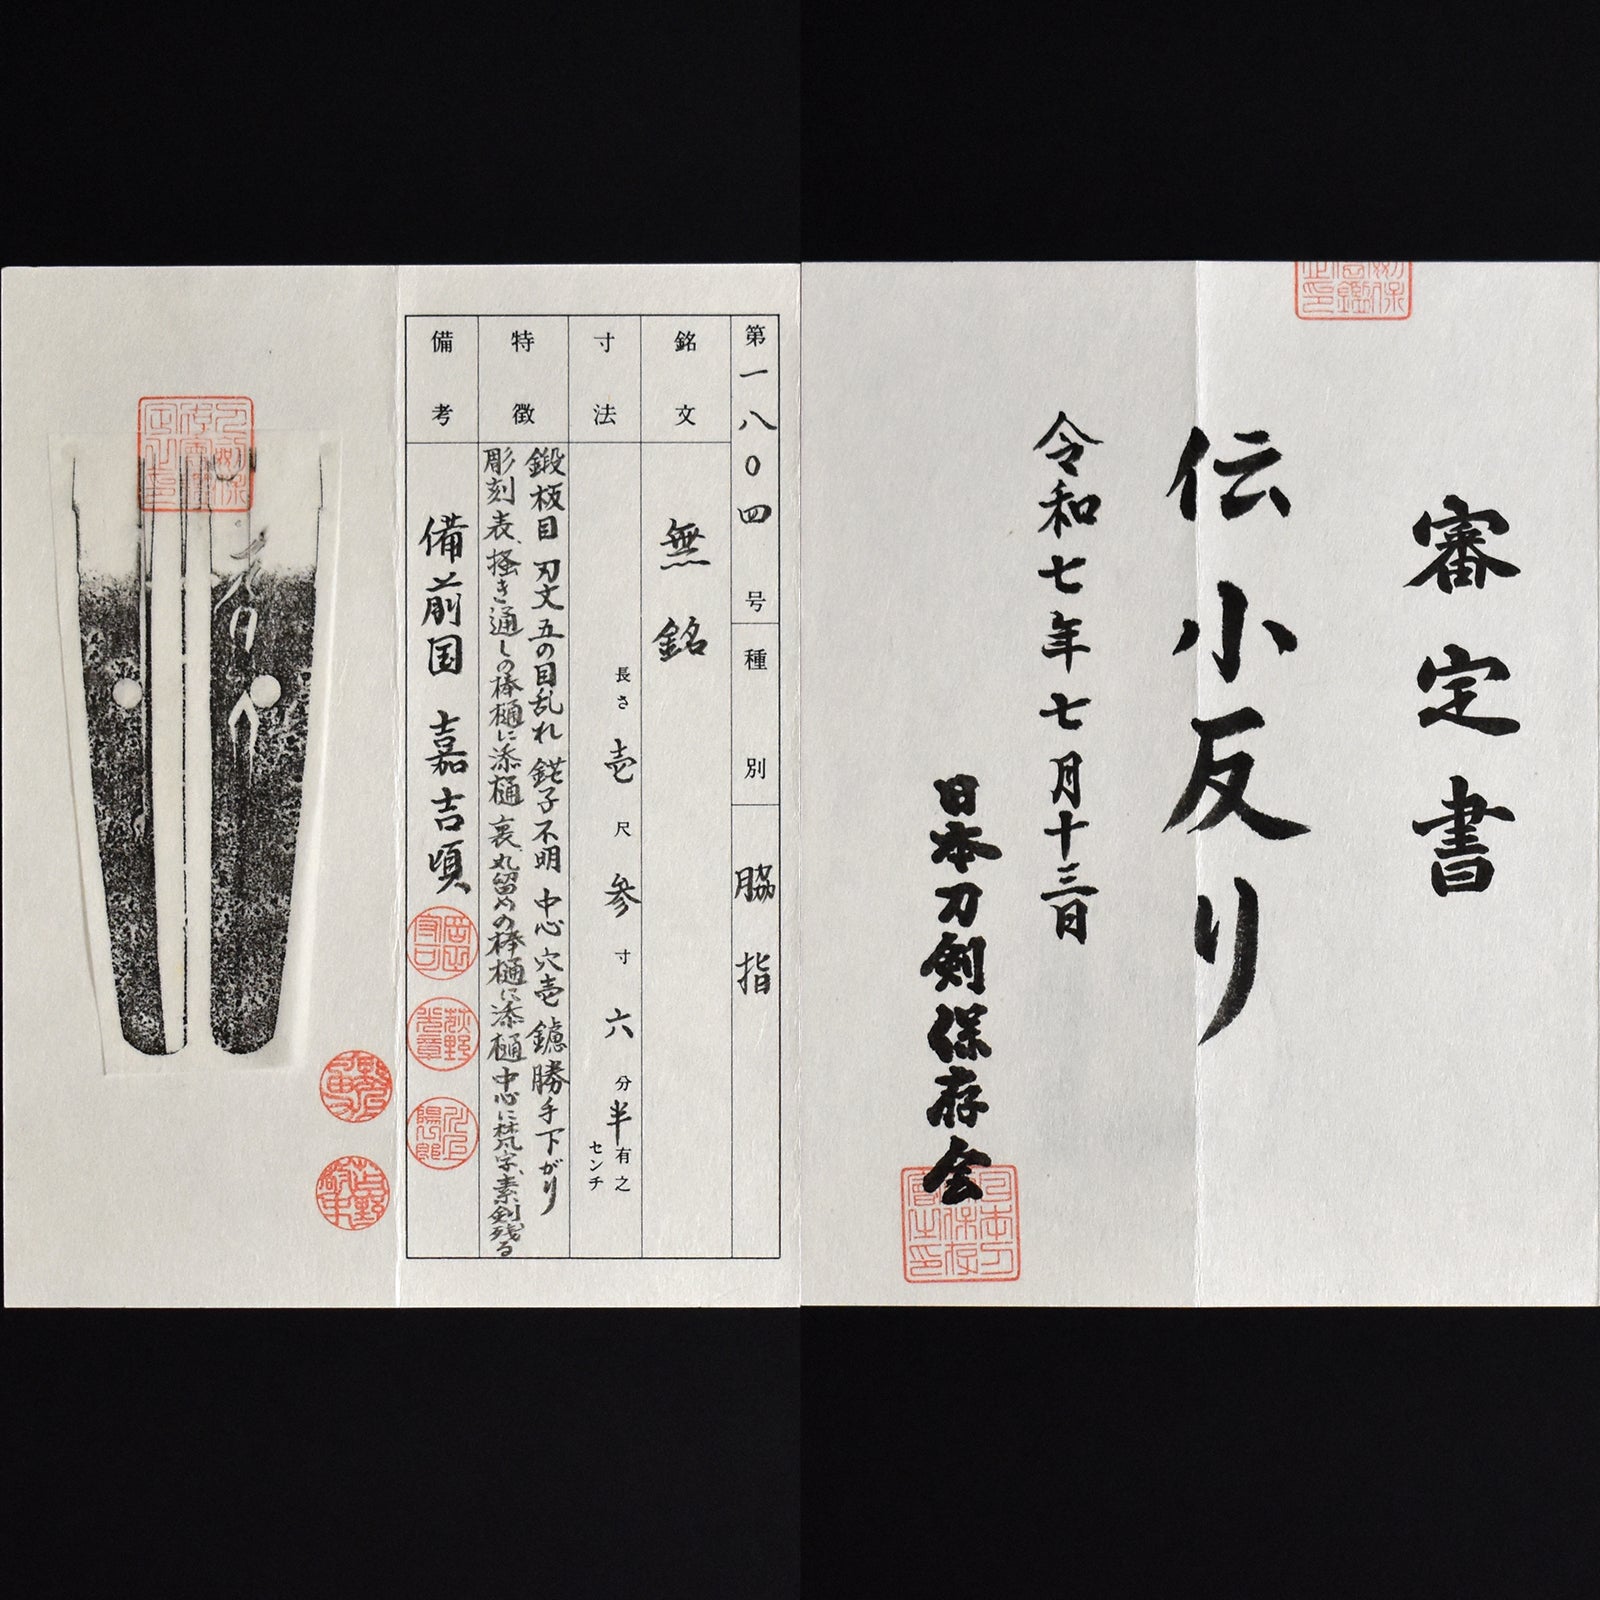 審定書
伝小反り
令和七年七月十三日
日本刀剣保存会
第一八〇四号 種別 脇指
銘文 無銘
寸法 長さ 壱尺参寸六分半有之
センチ
特徴 鍛板目 刃文五の目乱れ 鋩子不明 中心穴壱 鑢勝手下がり
彫刻表、掻き通しの棒樋に添樋 裏、丸留めの棒樋に添樋 中心に梵字、素剣残る
備考 備前国 嘉吉頃